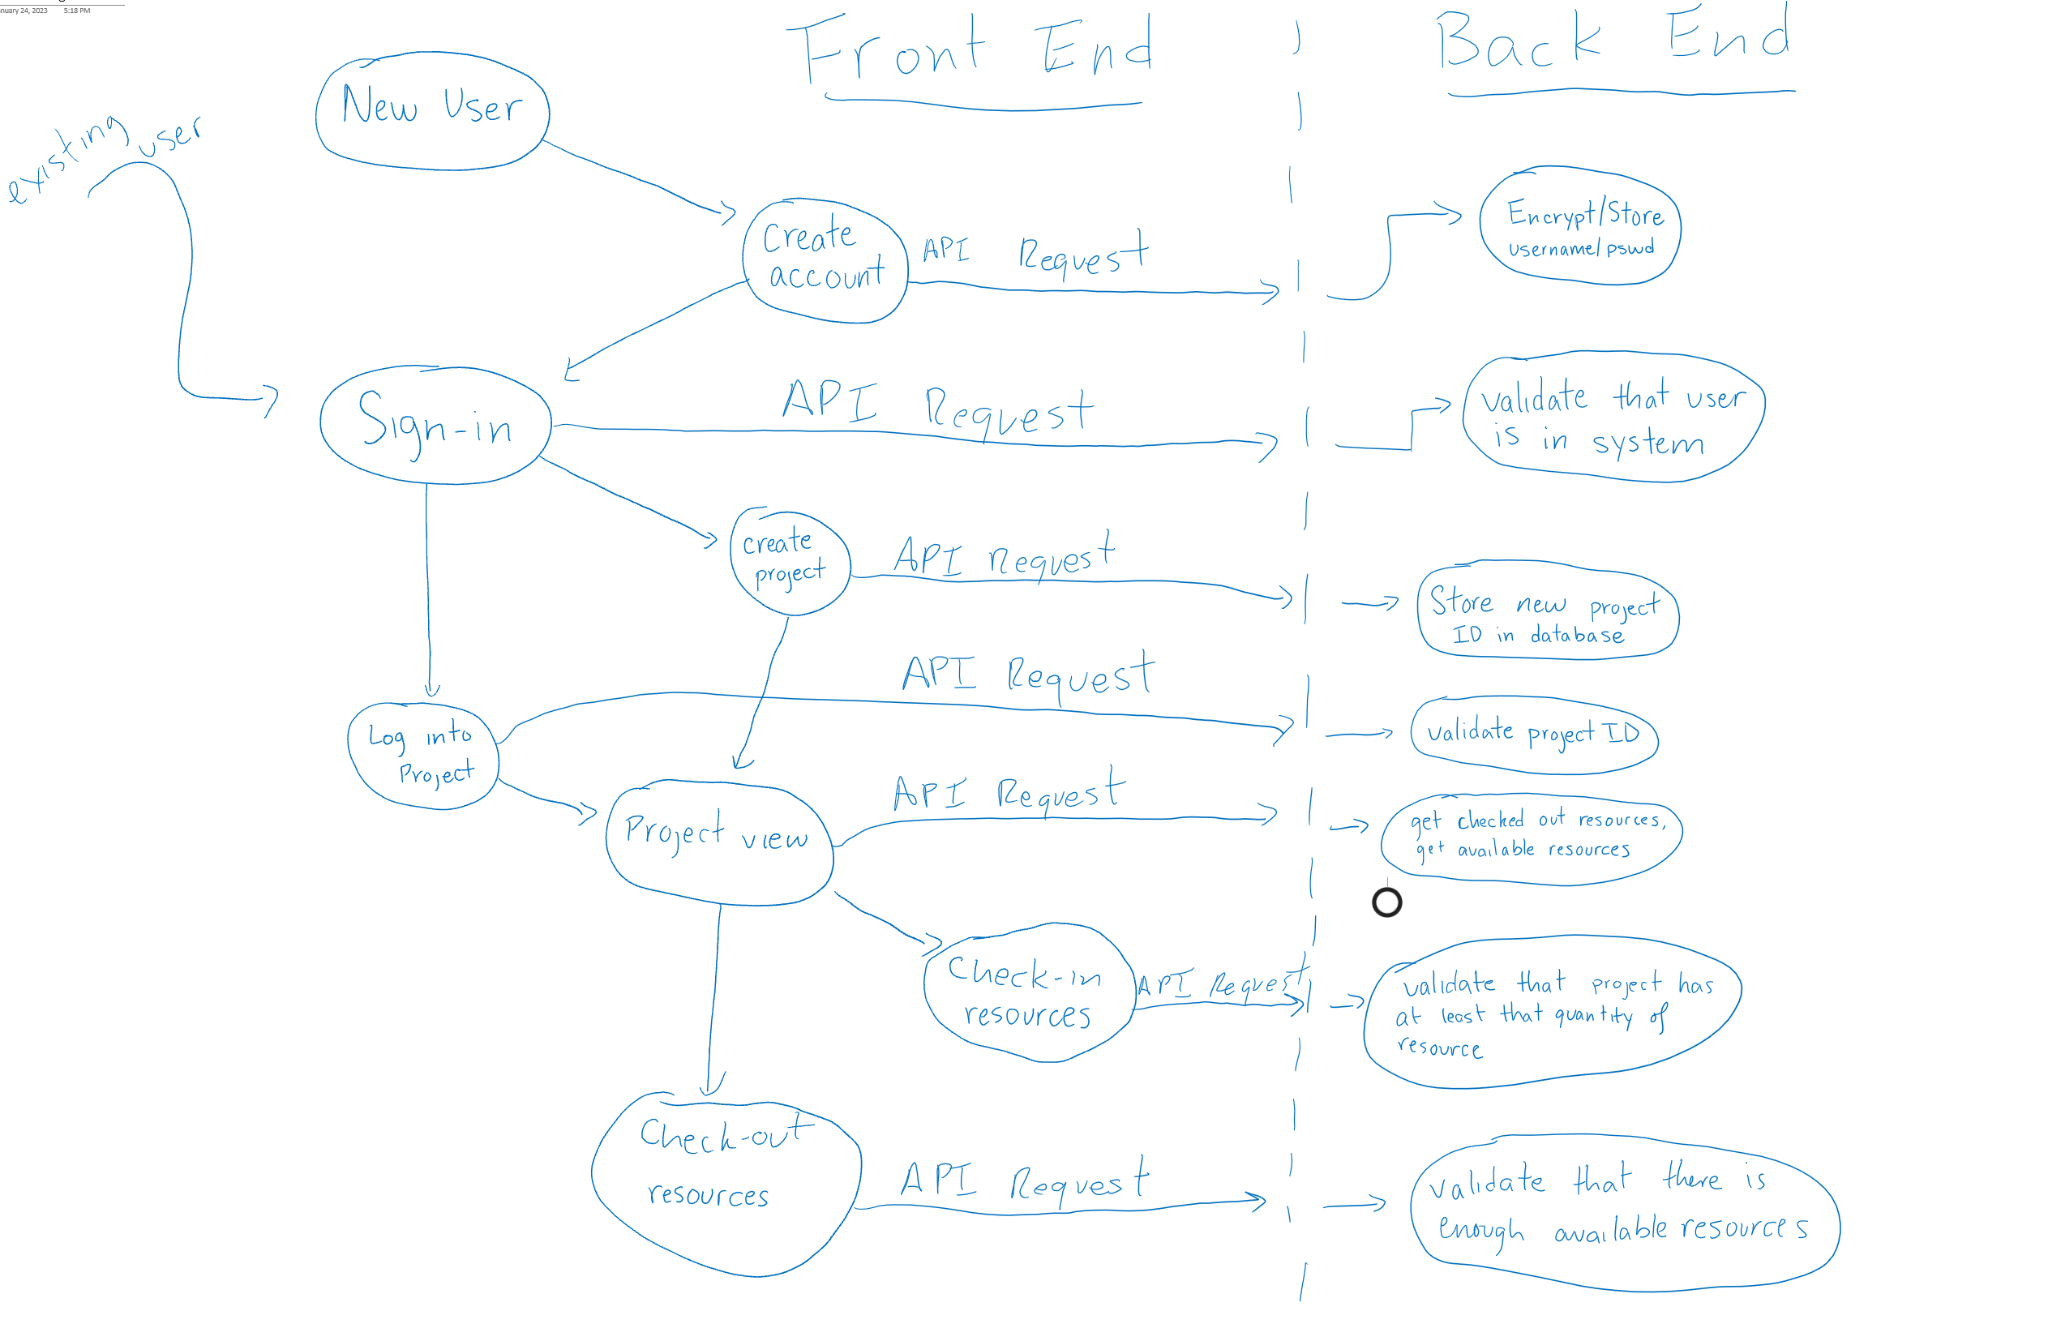 January 24, 2023 5:18 PM
Front End
Back End
New User
existing user
Create
account
API Request
Encrypt/Store
username/pswd
Sign-in
API Request
validate that user
is in system
create
project
API Request
Store new project
ID in database
Log into
Project
API Request
validate project ID
Project view
API Request
get checked out resources,
get available resources
Check-in
resources
API Request
validate that project has
at least that quantity of
resource
Check-out
resources
API Request
validate that there is
enough available resources